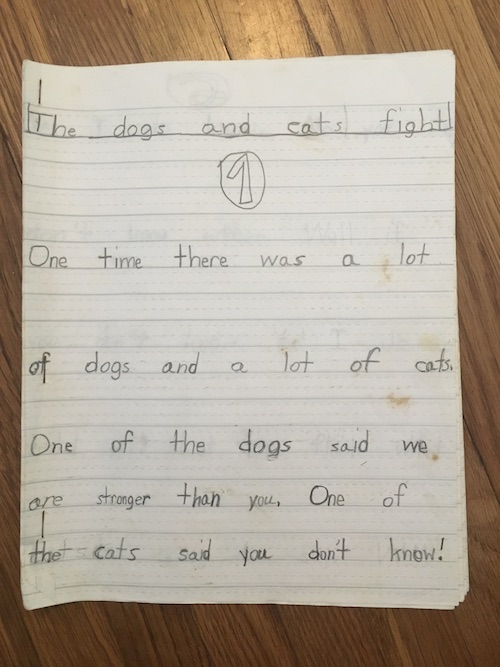 The dogs and cats fight
1
One time there was a lot
of dogs and a lot of cats.
One of the dogs said we
are stronger than you. One of
the cats said you don't know!